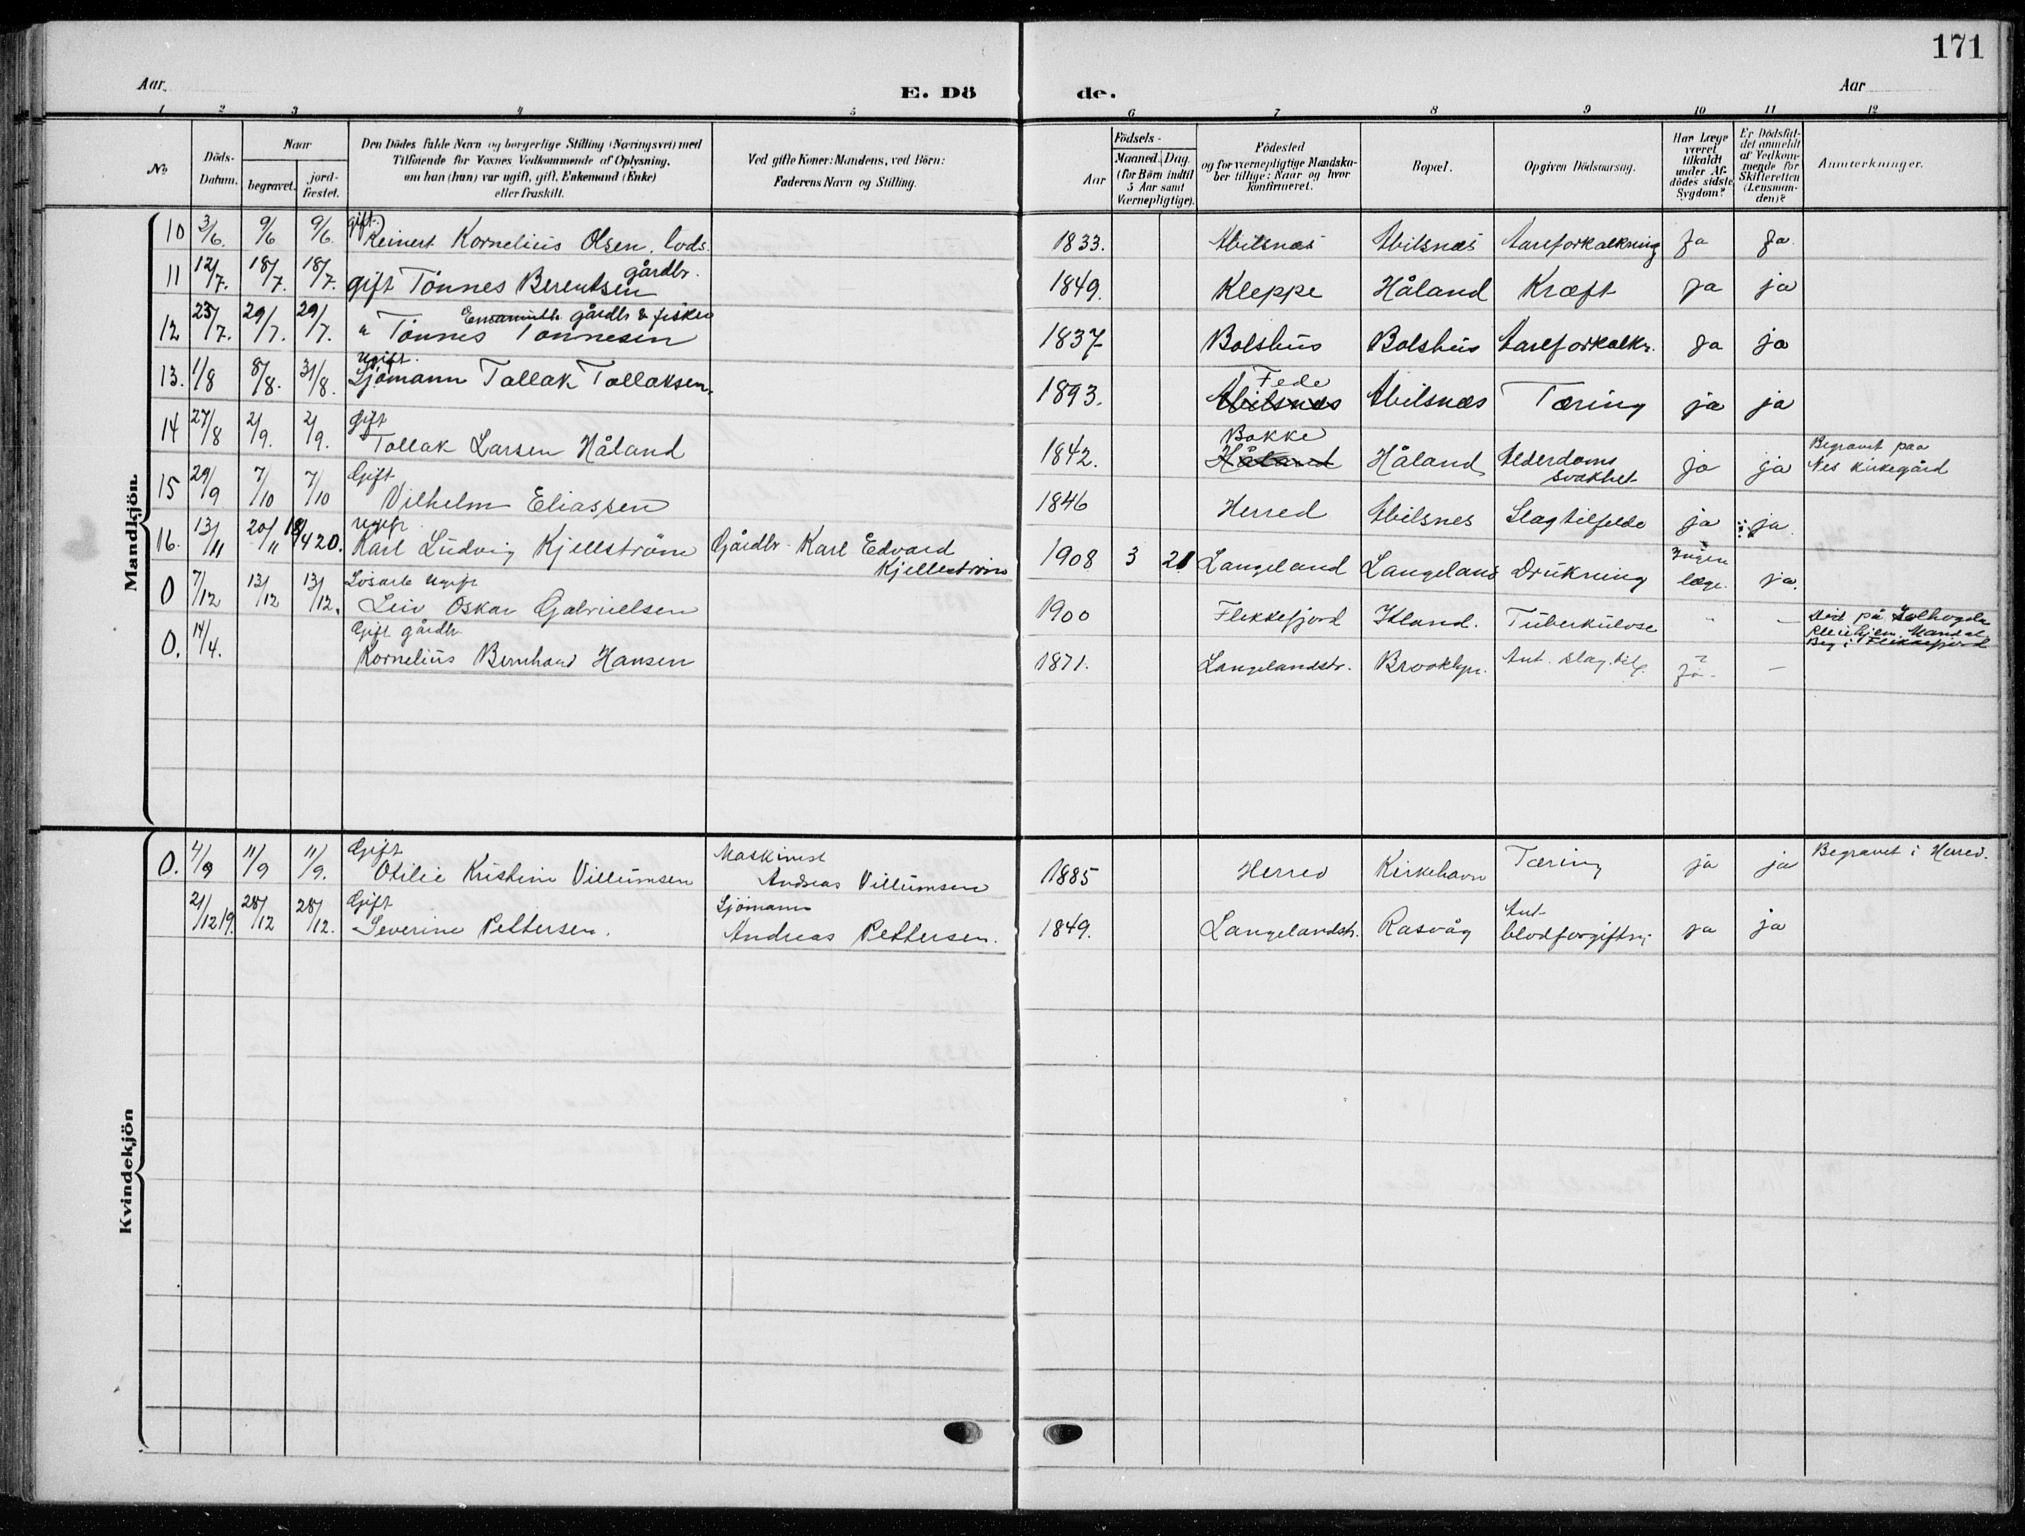 171
Aar
E. Dö
de.
Aar
1 2 3 4 5 6 7 8 9 10 11 12
No
Döds-Datum.
Naar
begravet.
jord-fæstet.
Den Dödes fulde Navn og borgerlige Stilling (Næringsvei) med
Tilföiende for Voxnes Vedkommende af Oplysning,
om han (hun) var ugift, gift, Enkemand (Enke)
eller fraskilt.
Ved gifte Koner: Mandens, ved Börn:
Faderens Navn og Stilling.
Födsels-
Aar
Maaned. Dag.
(for Börn indtil
5 Aar samt
Værnepligtige).
Födested
og for værnepligtige Mandska-
ber tillige: Naar og hvor
Konfirmeret.
Bopæl.
Opgiven Dödsaarsag.
Har Læge
været
tilkaldt
under Af-
dödes sidste
Sygdom?
Er Dödsfal-
det anmeldt
af Vedkom-
mende for
Skifteretten
(Lensman-
den)?
Anmærkninger.
Mandkjön.
10 3/6. 9/6 9/6. gift. Reinert Kornelius Olsen. lods. 1833. Abilsnæs Abilsnæs Aareforkalkning Ja Ja.
11 12/7. 18/7. 18/7. gift Tönnes Berentsen gårdbr. 1849. Kleppe Håland Kræft ja ja
12 25/7. 29/7. 29/7. " Tönnes Tönnesen gårdbr & fisker 1837 Bolshus Bolshus Aareforkalkn. Ja ja
13. 1/8 8/8. 31/8. ugift. Sjömann Tallak Tallaksen. 1893. Abilsnæs Fede Abilsnæs Tæring ja ja
14 27/8 2/9. 2/9. gift Tollak Larsen Håland 1842. Håland Bakke Håland Alderdoms svakhet ja ja Begravet paa Nes kirkegård
15 29/9 7/10 7/10 Gift Vilhelm Eliassen 1846 Herred Abilsnes Slagtilfelde ja ja.
16. 13/11 20/11 18/4 20. ugift. Karl Ludvig Kjellström Gårdbr. Karl Edvard Kjellström 1908 3 21 Langeland Langeland Drukning Ingen læge. ja.
0 7/12 13/12 13/12. Lösarb ugift Leiv Oskar Gabrielsen 1900 Flekkefjord Tuberkulose " - Död på Solhögda Pleiehjem Mandal. Beg i Flekkefjord
0. 14/4. Gift gårdbr Kornelius Bernhard Hansen 1871. Langelandstr. Brooklyn. Ant. slagtilf. ja? —
Kvindekjön
0. 4/9 11/9 11/9. Gift Otilie Kristine Villumsen Maskinist Andreas Villumsen 1885 Herred Kirkehavn Tæring ja ja Begravet i Herred.
21/12 19. 28/12 28/12. Gift Severine Pettersen. Sjömann Andreas Pettersen. 1849. Langelandstr. Rasvåg Ant. blodforgiftn. ja ja